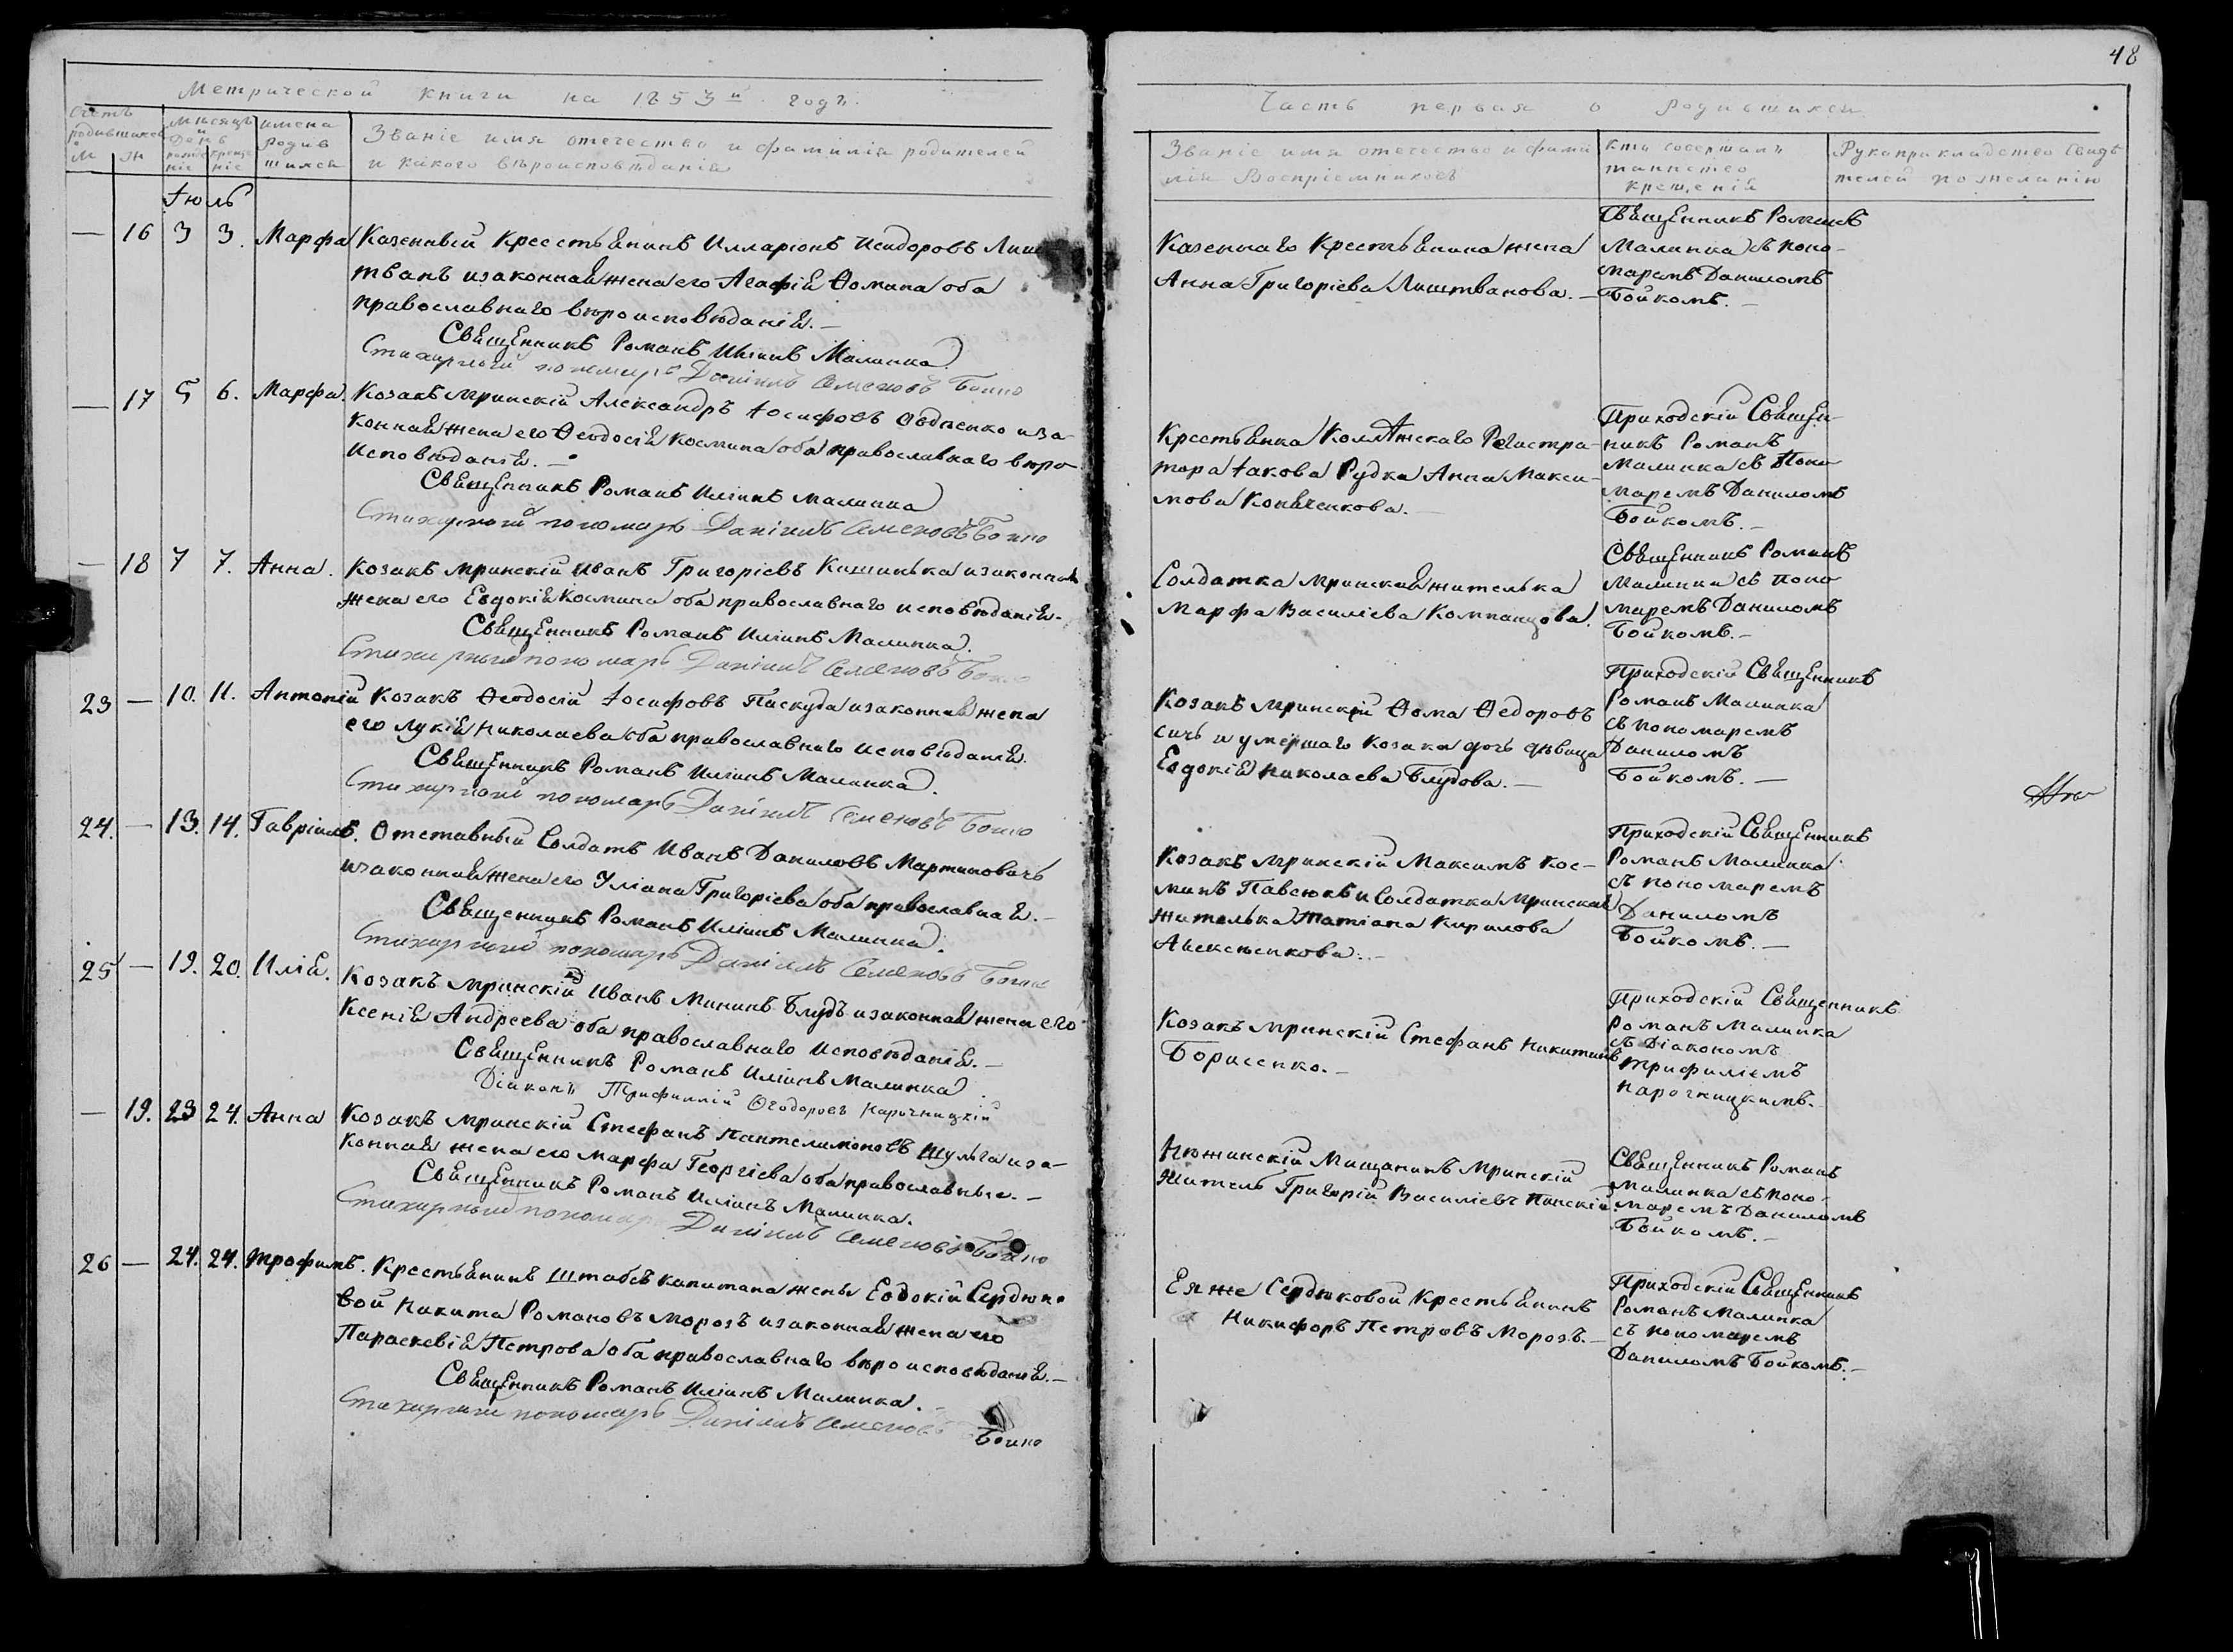 48
Метрической книги на 1853й годъ.
Счетъ родившихся
м ж
Мѣсяцъ и День
рожде ніе креще ніе
имена родив шихся
Званіе имя отечество и фамилія родителей
и какого вѣроисповѣданія
Часть первая о родившихся
Званіе имя отечество и фами
лія Воспріемниковъ
Кто совершалъ
таинство
крещенія
Рукоприкладство Свидѣ
телей по желанію
Іюль
— 16 3 3. Марфа Казенный Крестьянинъ Илларіонъ Исидоровъ Лиш
тванъ изаконная жена его Агафія Ѳомина оба
православнаго вѣроисповѣданія. —
Священникъ Романъ Иліинъ Малинка.
Стихарный пономарь Даніилъ Семеновъ Бойко
Казеннаго Крестьянина жена
Анна Григоріева Лиштванова. —
Священникъ Романъ
Малинка съ поно-
маремъ Даниломъ
Бойкомъ. —
— 17 5 6. Марфа. Козакъ мринскій Александръ Іосифовъ Овдіенко иза-
конная жена его Ѳеодосія Космина оба православнаго вѣро-
исповѣданія. —
Священникъ Романъ Иліинъ Малинка
Стихарный пономарь Даніилъ Семеновъ Бойко
Крестьянка Коллежскаго Регистра-
тора Іакова Рудка Анна Макси-
мова Коняченкова. —
Приходскій Священ-
никъ Романъ
Малинка съ Поно
маремъ Даниломъ
Бойкомъ. —
— 18 7 7. Анна. Козакъ мринскій Иванъ Григоріевъ Кишинька изаконная
жена его Евдокія Космина оба православнаго исповѣданія.
Священникъ Романъ Иліинъ Малинка.
Стихарный пономарь Даніилъ Семеновъ Бойко
Солдатка мринская жителька
Марфа Василіева Компанцова.
Священникъ Романъ
Малинка съ поно
маремъ Даниломъ
Бойкомъ. —
23 — 10. 11. Антоній Козакъ Ѳеодосій Іосифовъ Паскуда изаконная жена
его Лукія Николаева оба православнаго исповѣданія.
Священникъ Романъ Иліинъ Малинка.
Стихарный пономарь Даніилъ Семеновъ Бойко
Козакъ мринскій Ѳома Ѳедоровъ
сичь и умершаго козака дочь дѣвица
Евдокія Николаева Блудова. —
Приходскій Священникъ
Романъ Малинка
съ пономаремъ
Даниломъ
Бойкомъ. —
24. — 13. 14. Гавріилъ. Отставный Солдатъ Иванъ Даниловъ Мартиновичъ
изаконная жена его Уліана Григоріева оба православная. —
Священникъ Романъ Иліинъ Малинка.
Стихарный пономарь Даніилъ Семеновъ Бойко
Козакъ мринскій Максимъ Кос-
минъ Павсюкъ и Солдатка Мринская
жителька Татіана Кирилова
Алексѣенкова. —
Приходскій Священникъ
Романъ Малинка
съ пономаремъ
Даниломъ
Бойкомъ. —
25 — 19. 20. Илія. Козакъ мринскій Иванъ Мининъ Блудъ изаконная жена его
Ксенія Андреева оба православнаго исповѣданія. —
Священникъ Романъ Иліинъ Малинка
Діаконъ Трифиллій Ѳеодоровъ Нарочницкій
Козакъ мринскій Стефанъ Никитинъ
Борисенко. —
Приходскій Священникъ
Романъ Малинка
съ Діакономъ
Трифиліемъ
Нарочницкимъ.
— 19. 23 24. Анна Козакъ мринскій Стефанъ Пантелимоновъ Шульга иза-
конная жена его Марфа Георгіева оба православные. —
Священникъ Романъ Иліинъ Малинка.
Стихарный пономарь Даніилъ Семеновъ Бойко
Нѣжинскій Мищанинъ Мринскій
Житель Григорій Василіевъ
Священникъ Романъ
Малинка съ поно-
маремъ Даниломъ
Бойкомъ. —
26 — 24. 24. Трофимъ. Крестьянинъ Штабсъ капитана жены Евдокіи Сердюко
вой Никита Романовъ Морозъ изаконная жена его
Параскевія Петрова оба православнаго вѣроисповѣданія. —
Священникъ Романъ Иліинъ Малинка.
Стихарный пономарь Даніилъ Семеновъ Бойко
Ея же Сердюковой Крестьянинъ
Никифоръ Петровъ Морозъ. —
Приходскій Священникъ
Романъ Малинка
съ пономаремъ
Даниломъ Бойкомъ. —